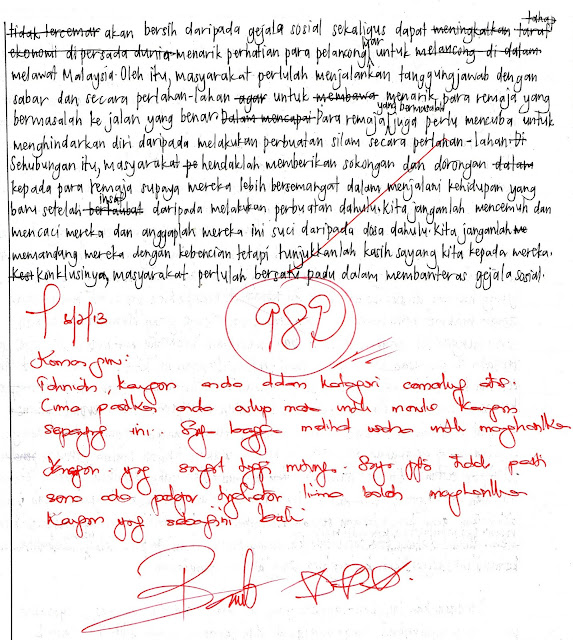 tahap
tidak tercemar akan bersih daripada gejala sosial sekaligus dapat meningkatkan taraf
ekonomi dipersada dunia menarik perhatian para pelancong luar untuk melancong di dalam
melawat Malaysia. Oleh itu, masyarakat perlulah menjalankan tanggungjawab dengan
sabar dan secara perlahan-lahan agar untuk membawa menarik para remaja yang
bermasalah ke jalan yang benar. Dalam mencapai Para remaja yang bermasalah juga perlu mencuba untuk
menghindarkan diri daripada melakukan perbuatan silam secara perlahan-lahan. Di
Sehubungan itu, masyarakat pe hendaklah memberikan sokongan dan dorongan dalam
kepada para remaja supaya mereka lebih bersemangat dalam menjalani kehidupan yang
baru setelah bertaubat insaf daripada melakukan perbuatan dahulu. Kita janganlah mencemuh dan
mencaci mereka dan anggaplah mereka ini suci daripada dosa dahulu. Kita janganlah me
memandang mereka dengan kebencian tetapi tunjukkanlah kasih sayang kita kepada mereka.
Kes konklusinya, masyarakat perlulah bersatu padu dalam membanteras gejala sosial.
98%
5/2/13
Komen guru:
Tahniah, karangan anda dalam kategori cemerlang
Cuma pastikan anda cukup masa untuk menulis karangan
sepanjang ini. Saya bangga melihat usaha untuk menghasilkan
karangan yang sangat tinggi mutunya. Saya juga tidak pasti
sama ada pelajar tingkatan lima boleh menghasilkan
karangan yang sebegini baik